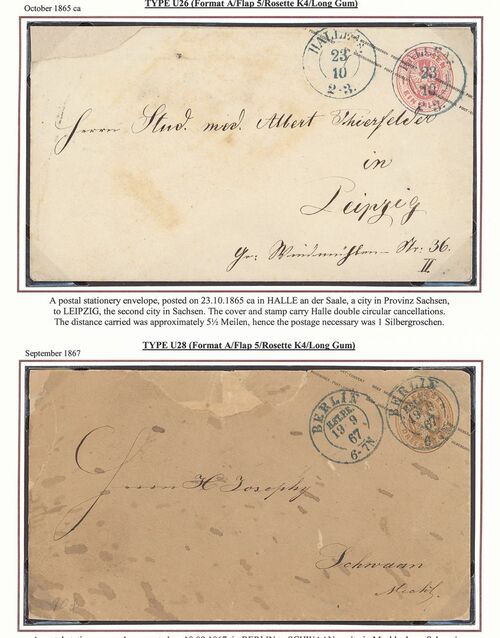 TYPE U26 (Format A/Flap 5/Rosette K4/Long Gum)
October 1865 ca
HALLE
23
10
2-3.
HALLE
23
10
2-3.
Herrn Stud. med. Albert Thierfelder
in
Leipzig
Gr: Windmühlen-Str: 36.
II
A postal stationery envelope, posted on 23.10.1865 ca in HALLE an der Saale, a city in Provinz Sachsen,
to LEIPZIG, the second city in Sachsen. The cover and stamp carry Halle double circular cancellations.
The distance carried was approximately 5½ Meilen, hence the postage necessary was 1 Silbergroschen.
TYPE U28 (Format A/Flap 5/Rosette K4/Long Gum)
September 1867
BERLIN
19 9
67
6-7N
BERLIN
19 9
67
6
Herrn H Josephy
Schwaan
Meckl.